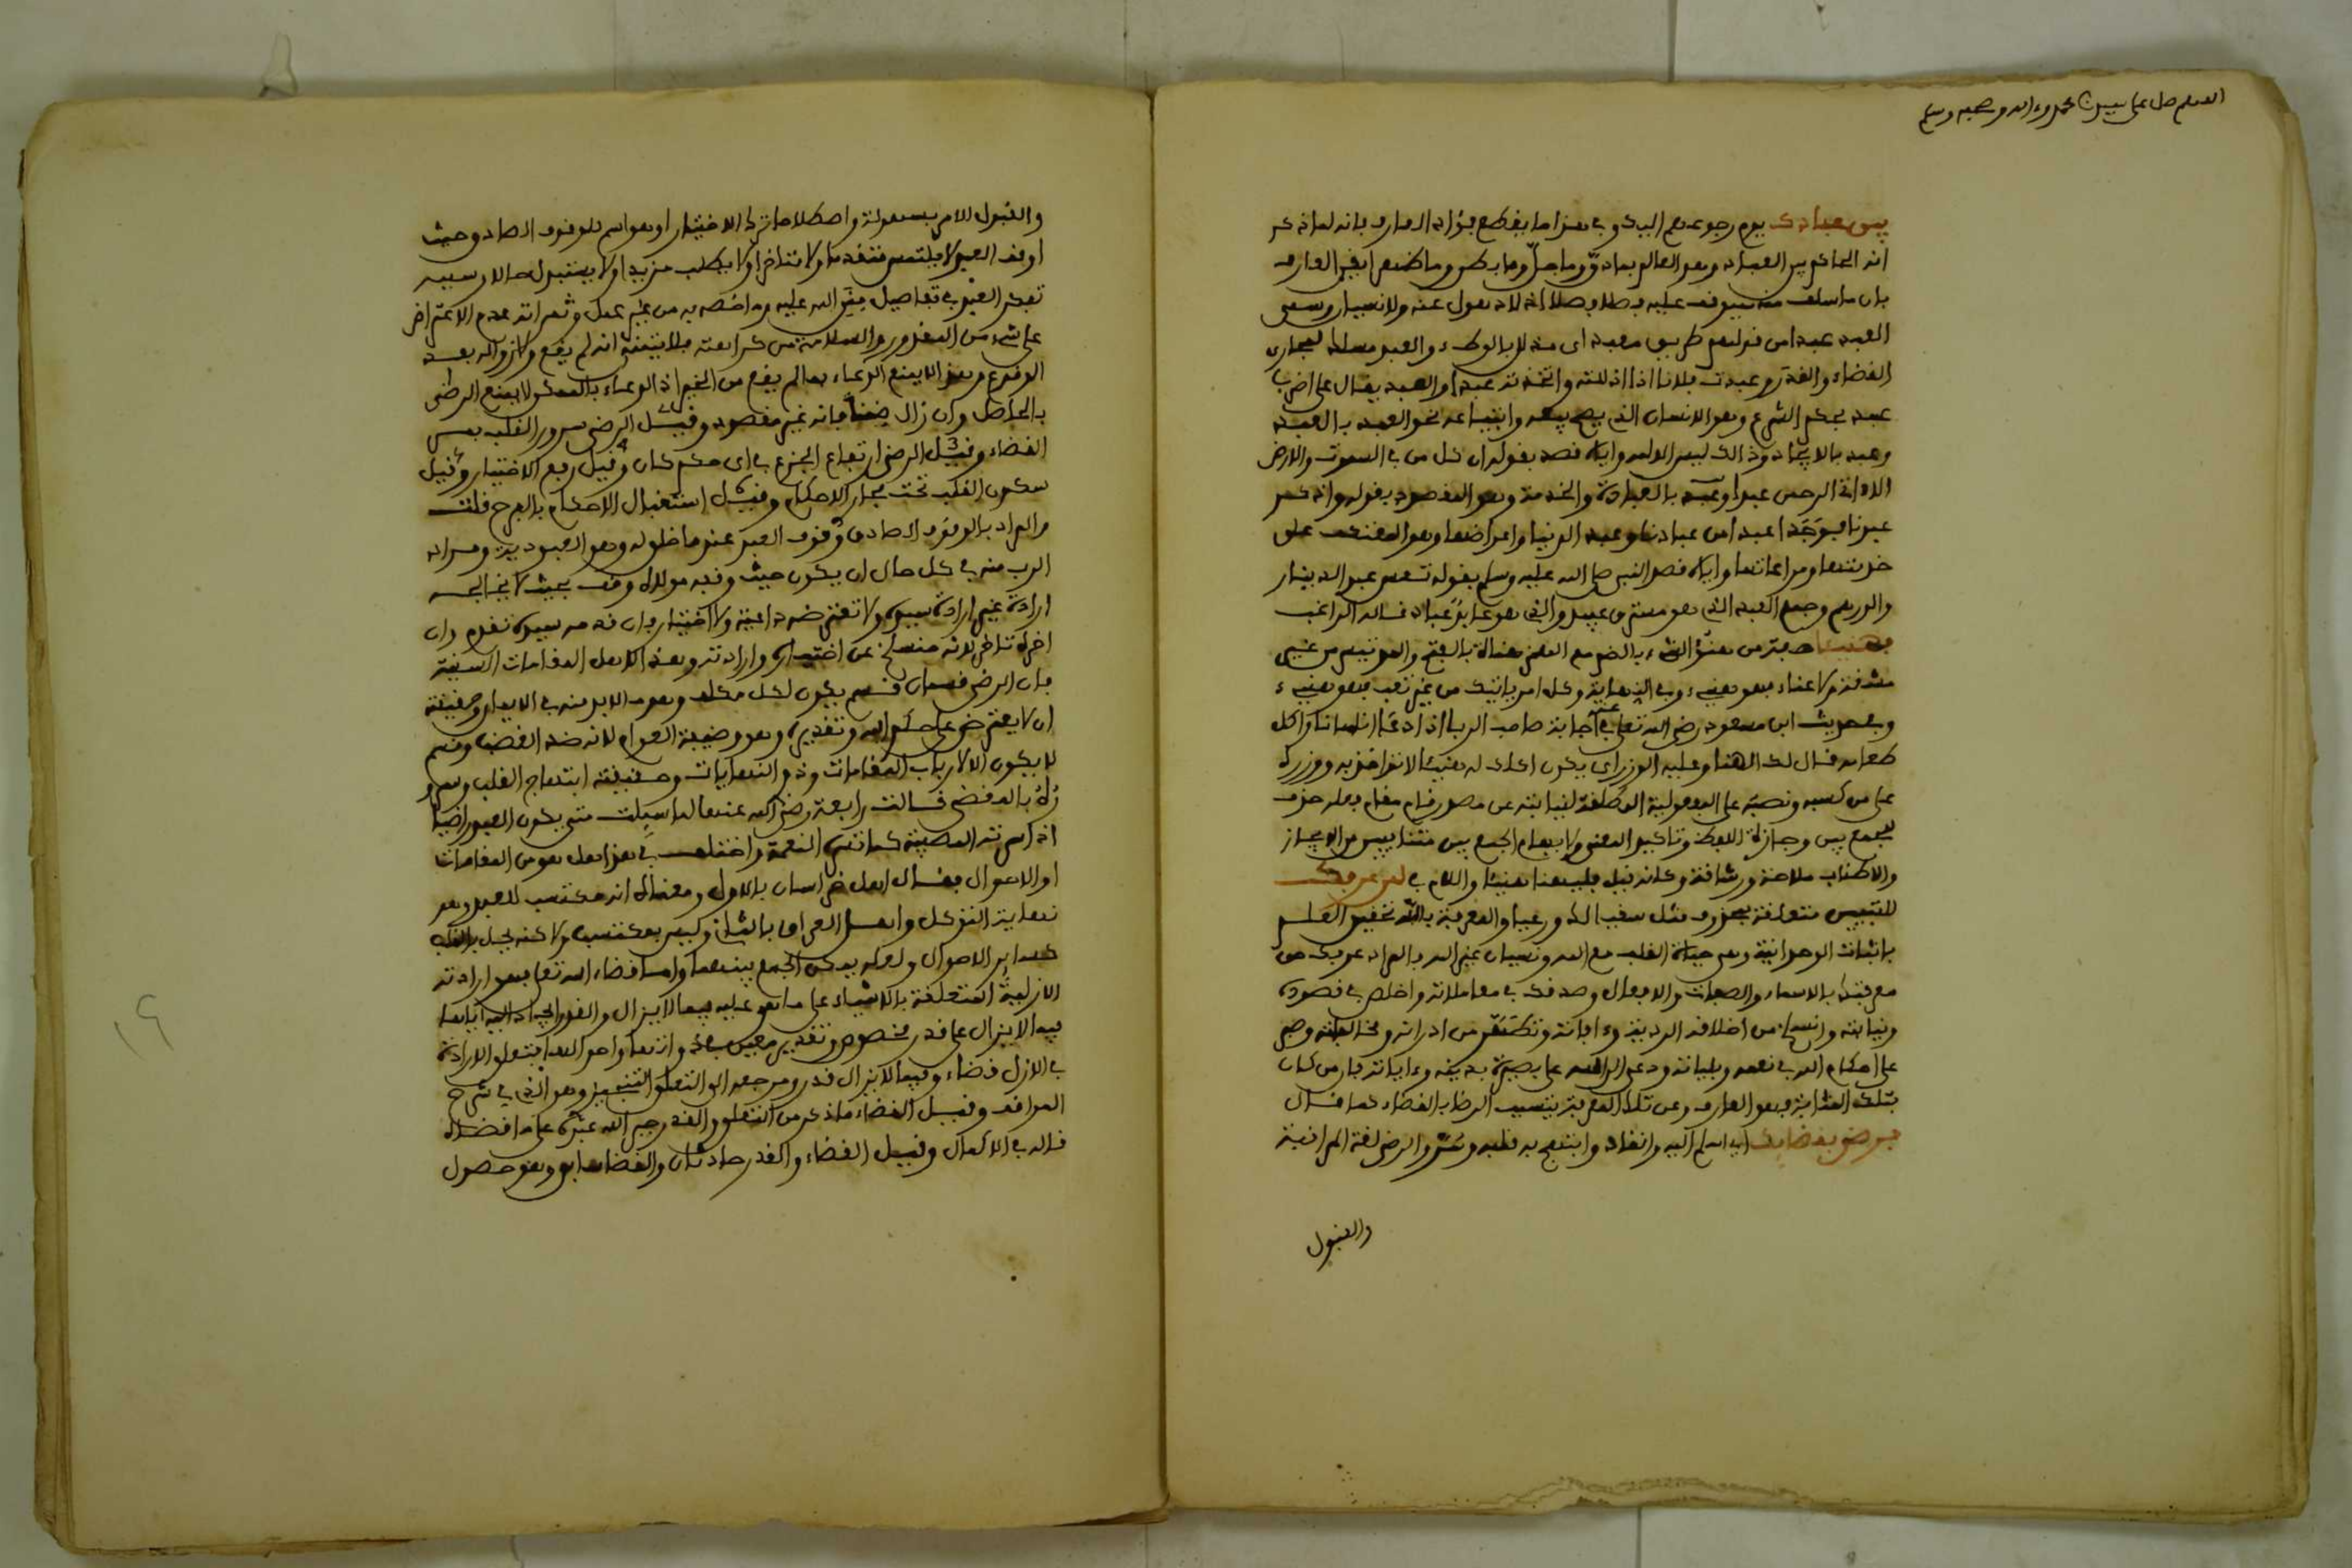 اللهم صل على سيدنا محمد وءاله وصحبه وسلم
بين عبادك يوم رجوعهم اليك وفي هذا ما يقطع فؤاد العارف بانه لما ذكر
انه الحاكم بين العباد وهو العالم بما دق وما جل وما بطن وما ظهر ايقن العارف
بان ما سلف منه سيوقف عليه
العبد عبدا من قولهم طريق معبد اى مذلل بالوطء والعبد مسلك لمجارى
القضاء والقدر وعبدت فلانا اذا اذللته واتخذته عبدا والعبد يقال على اضرب
عبد بحكم الشرع وهو الانسان الذى يصح بيعه وابتياعه نحو العبد بالعبد
وعبد بالايجاد وذالك ليس الا لله واياه قصد بقوله ان كل من في السموت والارض
الا ءاتى الرحمن عبدا وعبد بالعبادة والخدمة وهو المقصود بقوله واذكر
عبدنا فوجدا عبدا من عبادنا وعبد الدنيا واعراضها وهو المعتكف على
خدمتها ومراعاتها واياه قصد النبي صلى الله عليه وسلم بقوله تعس عبد الدينار
والدرهم وجمع العبد الذى هو مسترق عبيد والذى هو عابد عباد قاله الراغب
مشقة ولا عناء فهو هنيء وفي النهاية وكل امر ياتيك من غير تعب فهو هنيء
وفي حديث ابن مسعود رضي الله تعلى عنه في اجابة صاحب الربا اذا دعا انسانا واكل
طعامه قال لك المهنا وعليه الوزر اى يكون اكلك له هنيئا لا تؤاخذ به ووزره
على من كسبه ونصبه على المفعولية المطلقة لنيابته عن مصدر قام مقام فعله حذف
ليجمع بين وجازة اللفظ وتاكيد المعنى ولايهام الجمع بين متنافيين من الايجاز
والاطناب ملاحة ورشاقة وكانه قيل فليهنا هنيئا واللام في لمن عرفك
للتبيين متعلقة بمحذوف مثل سقيا لك ورعيا والمعرفة بالله تحقيق العلم
باثبات الوحدانية وهي حياة القلب مع الله ونسيان غير الله فالمراد عرفك حق
معرفتك بالاسماء والصفات والافعال وصدقك في معاملاته واخلص في قصوده
ونياته وانسلخ من اخلاقه الردية وءافاته وتطهر من ادرانه ومخالفاته وصبر
على احكام الله في نعمه وبلياته ودعى الى الله على بصيرة بدينه وءاياته فان من كان
بتلك المثابة فهو العارف وعن تلك المعرفة يتسبب الرضا بالقضاء كما قال
فرضي بقضائك اى استسلم اليه وانقاد وابتهج به قلبه وسر والرضى لغة الموافقة
والقبول
والقبول للامر بسهولة واصطلاحا ترك الاختيار او هو اسم للوقوف الصادق حيث
اوقف العبد لا يلتمس متقدما ولا متاخرا ولا يطلب مزيدا ولا يستبدل حالا وسببه
تفكر العبد في تفاصيل منن الله عليه وما خصه به من غير عمل وثمراته عدم الاعتراض
على شيء من المقدور والسلامة من كراهته فلا يتمنى انه لم يقع ولا زواله بعد
الوقوع وهذا لا يمنع الدعاء بما لم يقع من الخير اذ الدعاء بالممكن لا يمنع الرضى
بالحاصل وان زال ضمنا فانه غير مقصود وقيل الرضى سرور القلب بمر
القضاء وقيل الرضى ارتفاع الجزع في اى حكم كان وقيل رفع الاختيار وقيل
سكون القلب تحت مجارى الاحكام وقيل استقبال الاحكام بالفرح قلت
والمراد بالوقوف الصادق وقوف العبد عندما خلق له وهو العبودية ومراد
الرب منه في كل حال ان يكون حيث وقفه مولاه وقف بحيث لا يخالجه
ارادة غير ارادة سيده ولا تعترضه داعية ولا اختيار فان قدمه سيده تقدم وان
اخره تاخر لانه منسلخ عن اختياره وارادته وهذا لاهل المقامات السنية
فان الرضى قسمان قسم يكون لكل مكلف وهو ما لا بد منه في الايمان وحقيقته
ان لا يعترض على حكم الله وتقديره وهو وظيفة العوام لانه ضد الغضب وقسم
لا يكون الا لارباب المقامات وذوى النهايات وحقيقته ابتهاج القلب وسرو
ره بالمقضي قالت رابعة رضي الله عنها لما سيلت متى يكون العبد راضيا
اذا سرته المصيبة كما تسره النعمة واختلف في هذا هل هو من المقامات
او الاحوال فقال اهل خراسان بالاول ومعناه انه مكتسب للعبد وهو
نهاية التوكل واهل العراق بالثانى وليس بمكتسب ولاكنه يحل بالقلب
كسائر الاحوال ولعله يمكن الجمع بينهما واما قضاء الله تعلى فهو ارادته
الازلية المتعلقة بالاشياء على ما هو عليه فيما لا يزال والقدر ايجاده اياها
فيما لا يزال على قدر مخصوص وتقدير معين
في الازل قضاء وفيما لا يزال قدر ومرجعه الى التعلق التنجيزي وهو الذى في شرح
المواقف وقيل القضاء ما ذكر من التعلق والقدر جبر الله عبده على ما قضاه
قاله في الاكمال وقيل القضاء والقدر حادثان والقضا سابق وهو حصول
١٩